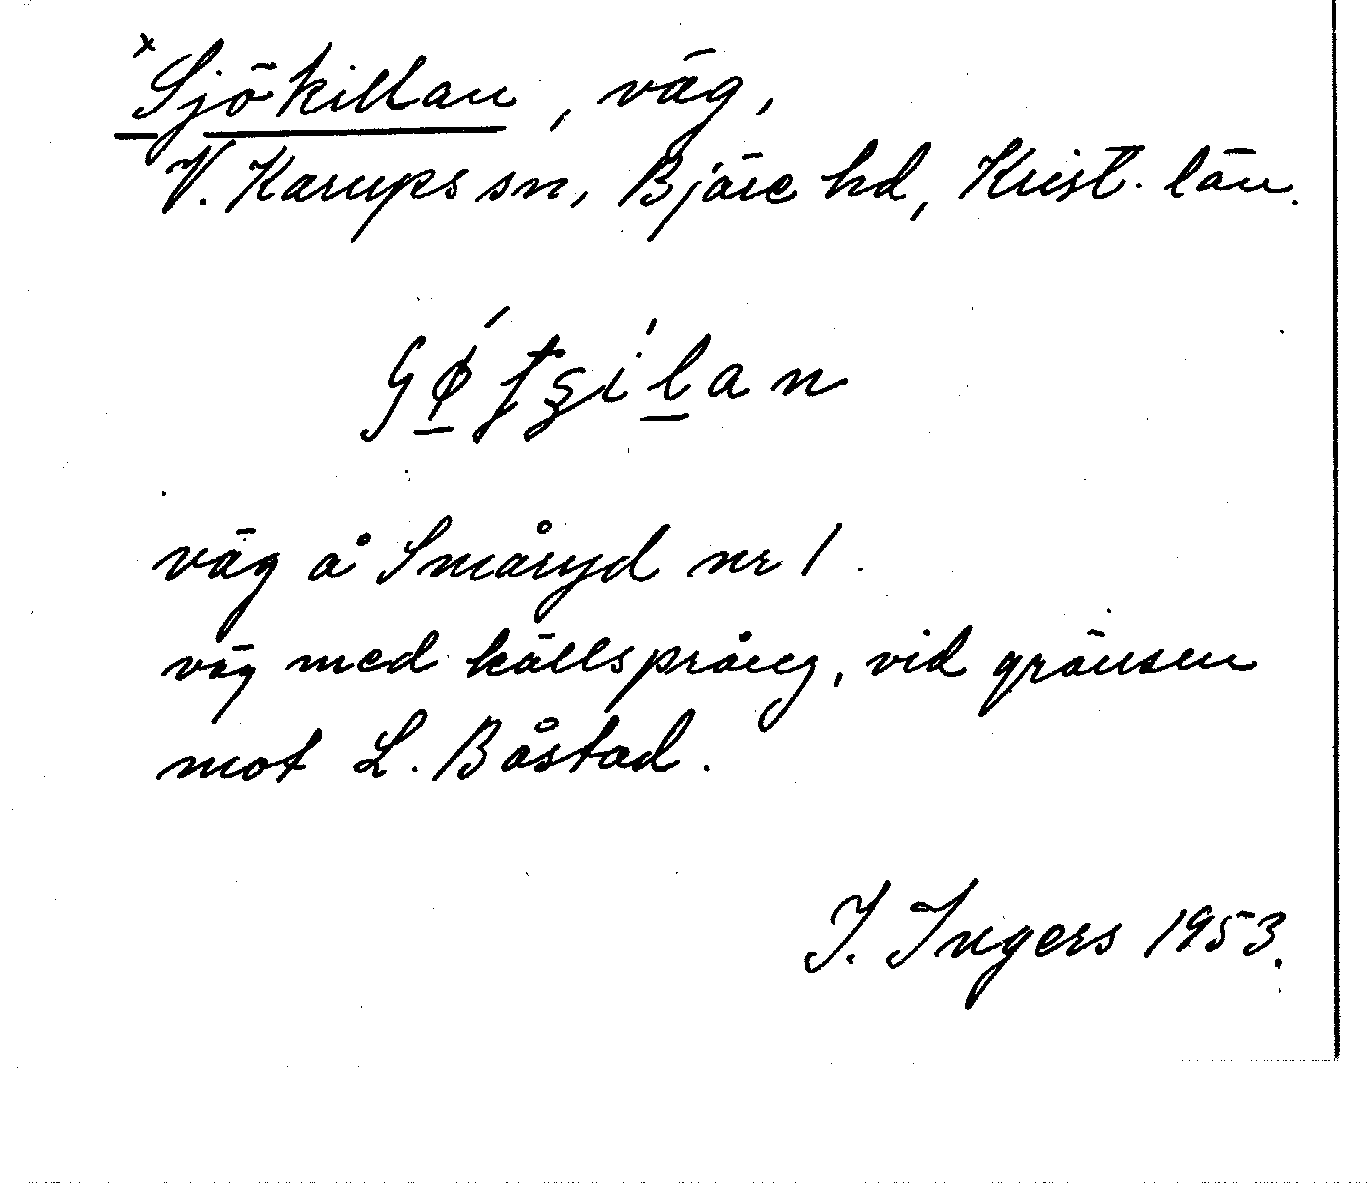 × Sjökillan, väg,
V. Karups sn, Bjäre hd, Krist. län.
väg å Småryd nr 1.
väg med källsprång, vid gränsen
mot L. Båstad.
I. Ingers 1953.